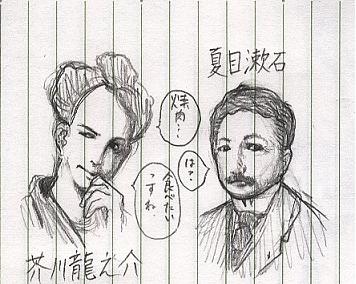 夏目漱石
焼肉…
は?
食べたい
っすね
芥川龍之介